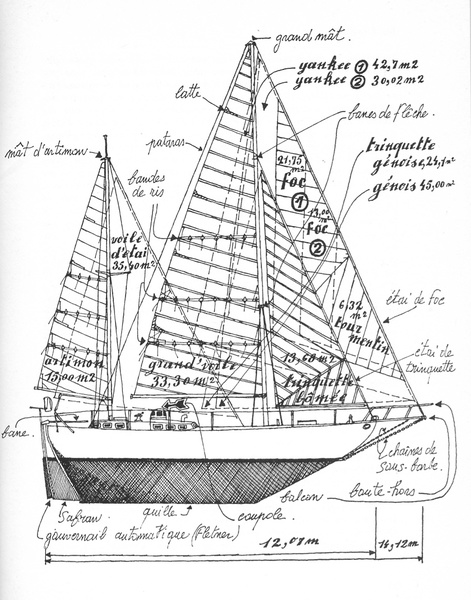 grand mât.
yankee ① 42,7 m2
yankee ② 30,02 m2
latte
banes de flèche.
mât d'artimon
pataras
trinquette
génoise, 24,1 m²
génois 45,00 m²
21,75
m²
foc
①
bandes
de ris
13,00
m²
foc
②
voile
d'étai
35,40 m²
6,32
m²
tour
mentin
étai de foc
étai de
trinquette
13,60 m²
trinquette
bômée
artimon
15,00 m²
grand'voile
33,30 m²
bane.
chaînes de
sous-barbe.
balcon
boute-hors
safran
quille
coupole.
gouvernail automatique (Fletner)
12,07 m
14,12 m